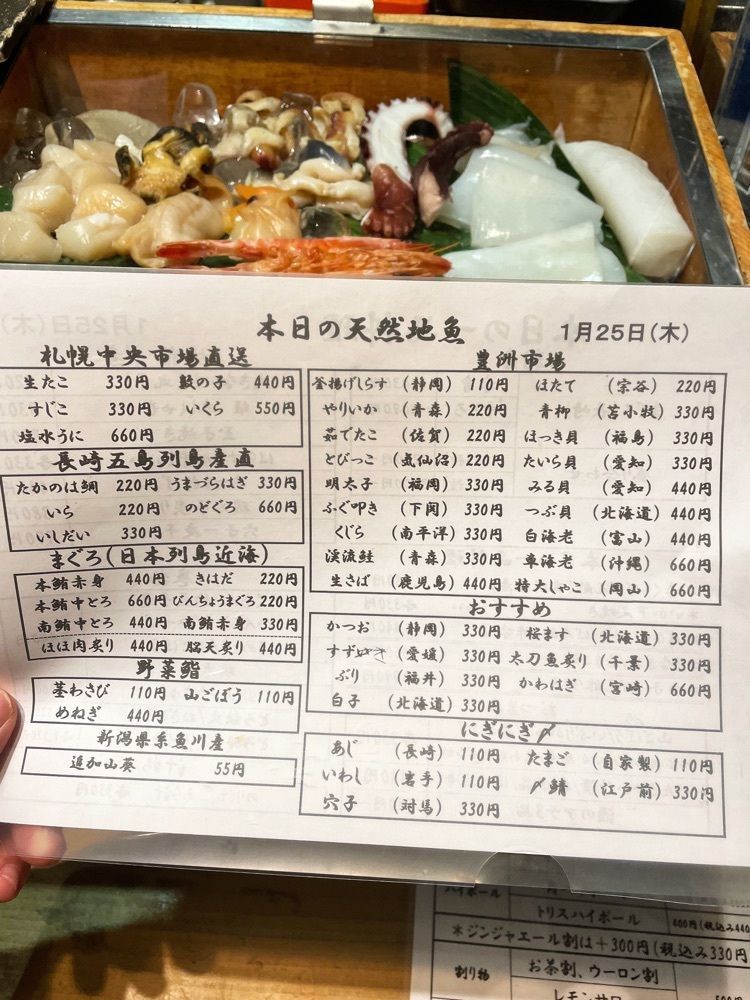 本日の天然地魚 1月25日(木)
札幌中央市場直送
生たこ 330円 数の子 440円
すじこ 330円 いくら 550円
塩水うに 660円
長崎五島列島産直
たかのは鯛 220円 うまづらはぎ 330円
いら 220円 のどぐろ 660円
いしだい 330円
まぐろ(日本列島近海)
本鮪赤身 440円 きはだ 220円
本鮪中とろ 660円 びんちょうまぐろ 220円
南鮪中とろ 440円 南鮪赤身 330円
ほほ肉炙り 440円 脳天炙り 440円
野菜鮨
茎わさび 110円 山ごぼう 110円
めねぎ 440円
新潟県糸魚川産
追加山葵 55円
豊洲市場
釜揚げしらす (静岡) 110円 ほたて (宗谷) 220円
やりいか (青森) 220円 青柳 (苫小牧) 330円
茹でたこ (佐賀) 220円 ほっき貝 (福島) 330円
とびっこ (気仙沼) 220円 たいら貝 (愛知) 330円
明太子 (福岡) 330円 みる貝 (愛知) 440円
ふぐ叩き (下関) 330円 つぶ貝 (北海道) 440円
くじら (南平洋) 330円 白海老 (富山) 440円
渓流鮭 (青森) 330円 車海老 (沖縄) 660円
生さば (鹿児島) 440円 特大しゃこ (岡山) 660円
おすすめ
かつお (静岡) 330円 桜ます (北海道) 330円
すずき (愛媛) 330円 太刀魚炙り (千葉) 330円
ぶり (福井) 330円 かわはぎ (宮崎) 660円
白子 (北海道) 330円
にぎにぎ〆
あじ (長崎) 110円 たまご (自家製) 110円
いわし (岩手) 110円 〆鯖 (江戸前) 330円
穴子 (対馬) 330円
ハイボール
トリスハイボール 400円(税込み440
*ジンジャエール割は+300円(税込み330円)
割り物 お茶割、ウーロン割
レモンサワー